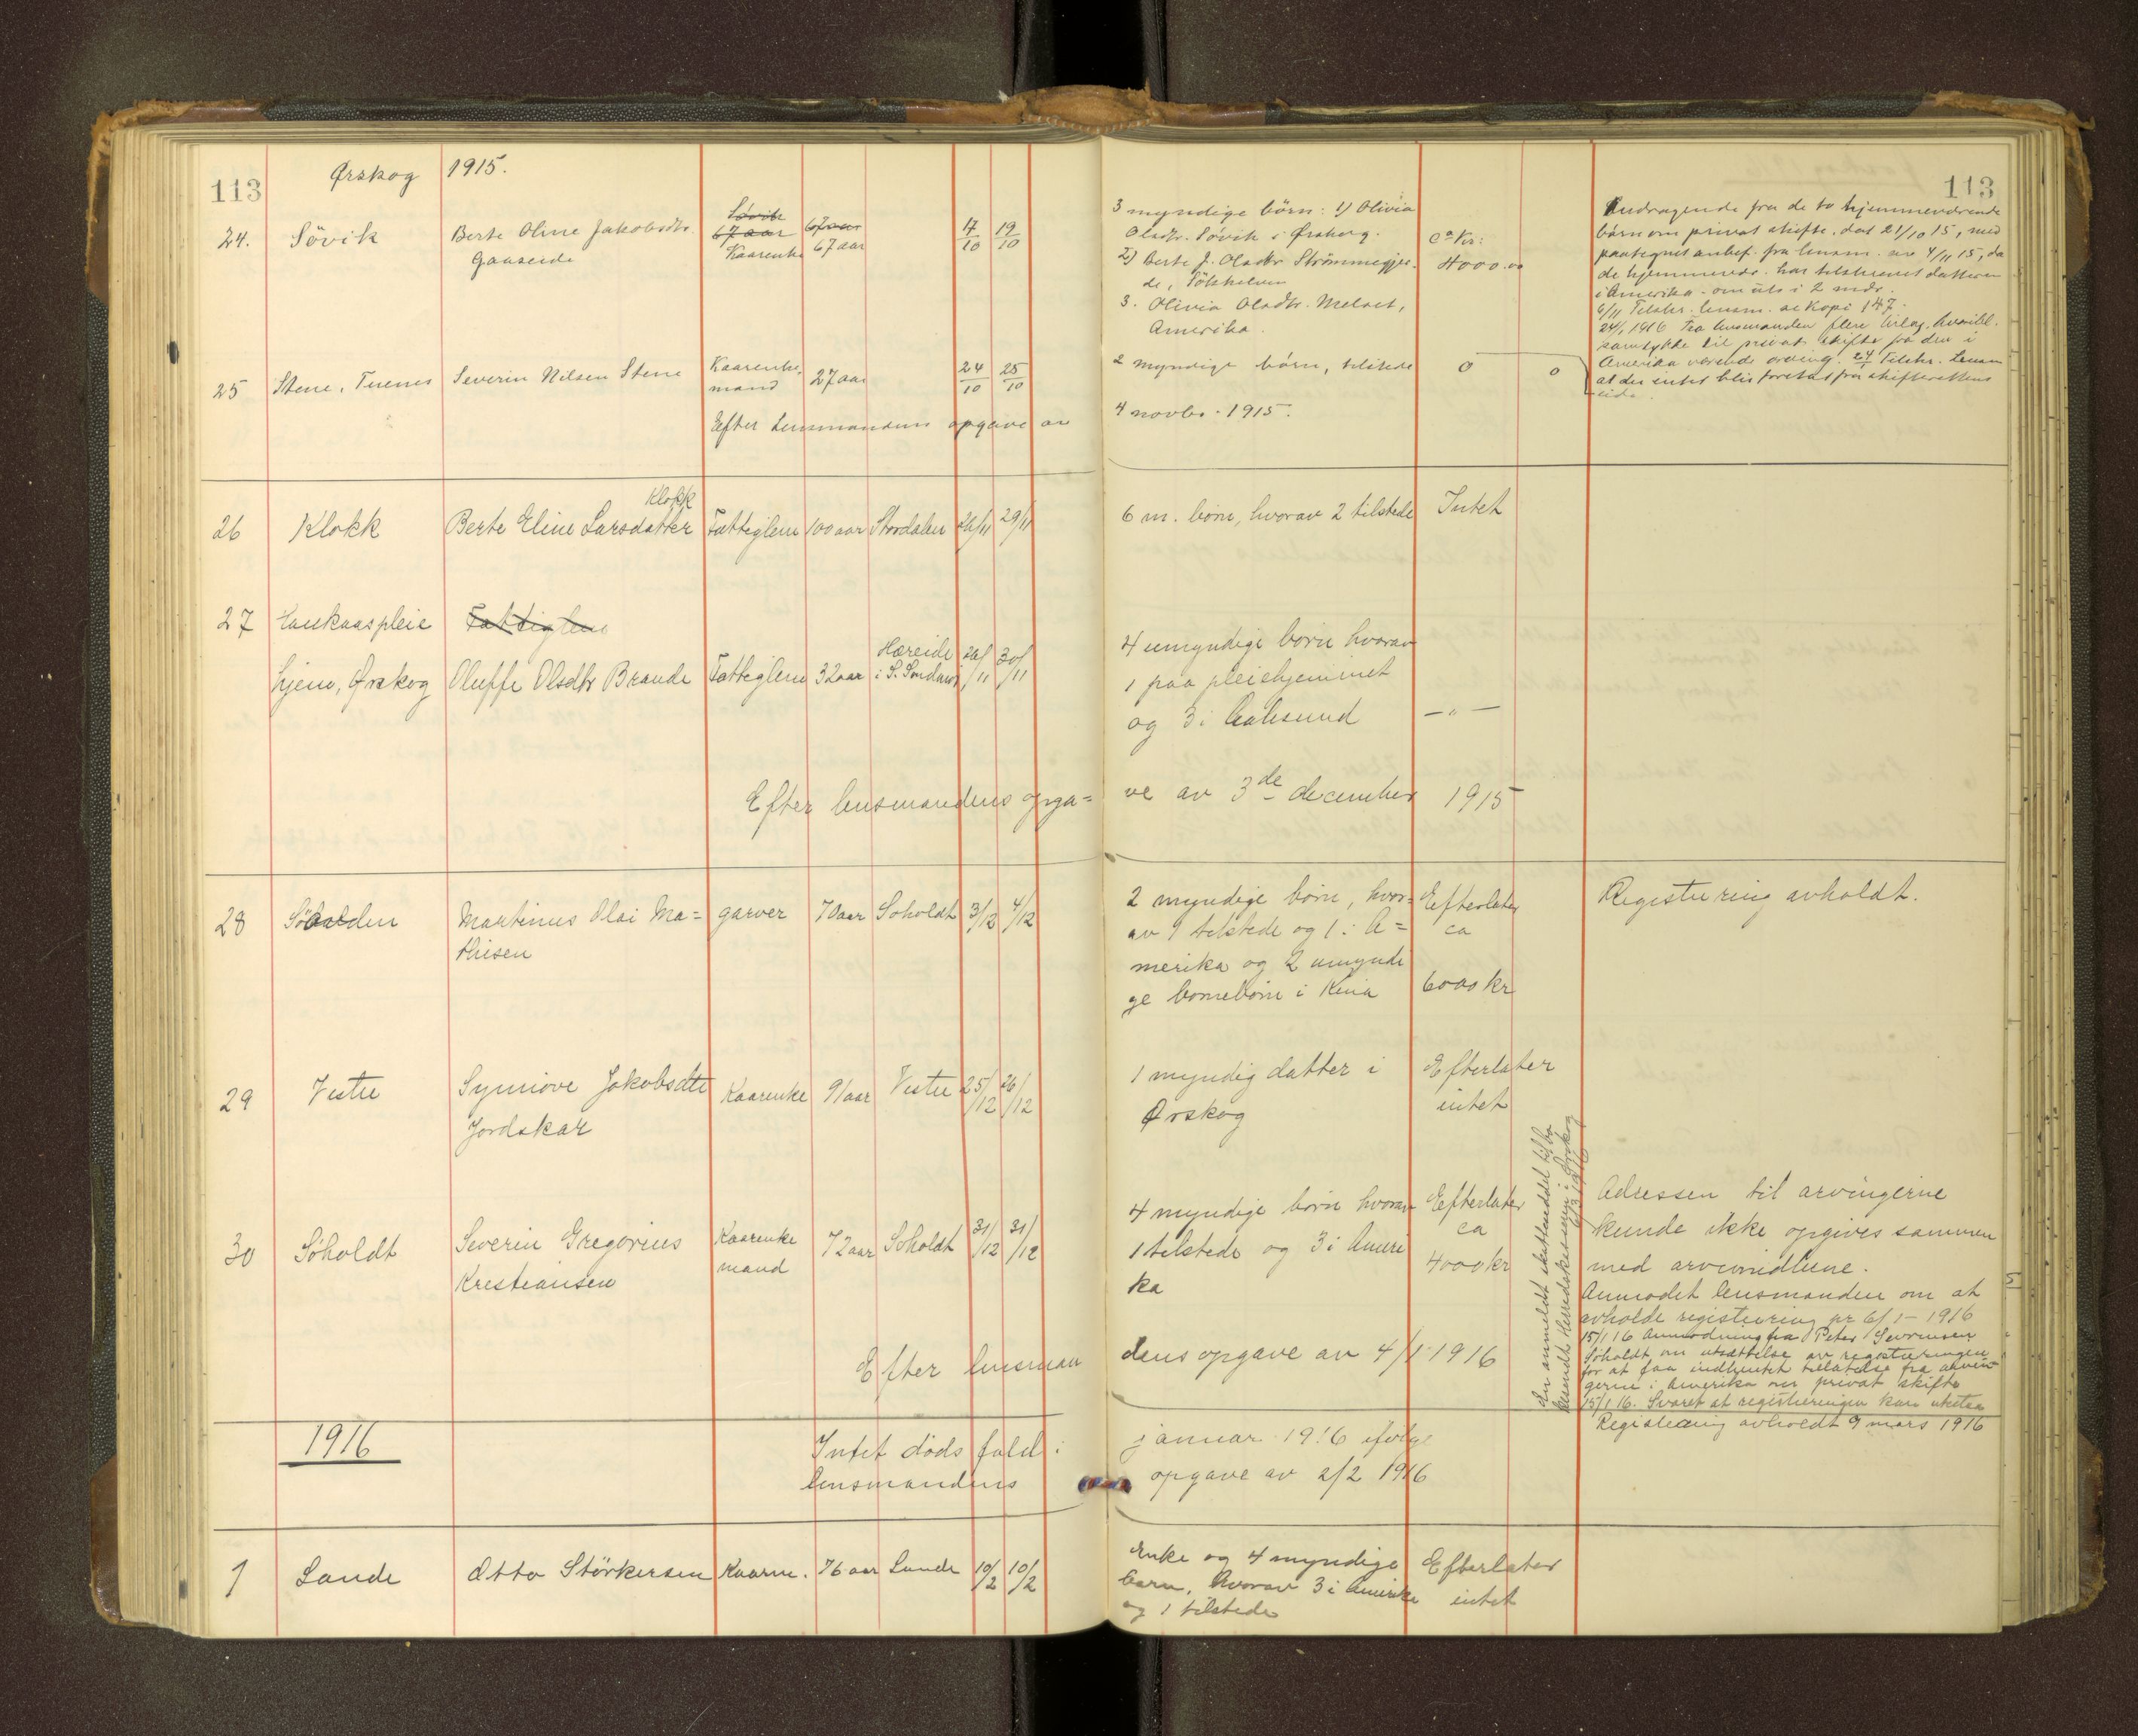 113
Ørskog 1915.
113
24. Sövik Berte Oline Jakobsdtr. Sövik 67 aar 17/10 19/10
Gaaseide 67 aar Kaarenke 67 aar
3 myndige börn: 1) Olivia
Oladtr. Sövik i Ørskog.
2) Berte J. Oladtr Strömmegjer-
de,
3. Olivia Oladtr. Melset,
Amerika.
ca Kr:
4000.00
Andragende fra de to hjemmeværende
börn om privat skifte. dat 21/10 15, med
paategnet anbef. fra lensm. av 4/11 15, da
de hjemmevær. har tilskrevet datteren
i Amerika - om uts i 2 mdr.
6/11 Tilskr. lensm. se Kopi 147.
24/1 1916 Fra lensmanden flere bilag, hvoribl.
samtykke til privat skifte fra den i
Amerika værende arving. 24/1 Tilskr. Lensm
at der intet blir foretat fra skifterettens
side.
25 Stene, Severin Nilsen Stene Kaarenke- 27 aar 24/10 25/10
mand
2 myndige börn, tilstede 0 0
Efter Lensmandens opgave av 4 novbr. 1915.
26 Klokk Berte Eline Larsdatter Klokk Fattiglem 100 aar Stordalen 26/11 29/11
6 m. börn, hvorav 2 tilstede Intet
27 pleie Fattiglem
hjem, Ørskog Oluffe Olsdtr Brande Fattiglem 32 aar Hareide i S. Søndmør 26/11 30/11
4 umyndige börn hvorav
1 paa pleiehjemmet
og 3 i Aalesund —"—
Efter lensmandens opga= ve av 3de december 1915
28 Martinus Olai Ma= garver 70 aar Soholdt 3/12 4/12
thisen
2 myndige börn, hvor=
av 1 tilstede og 1 i A=
merika og 2 umyndi
ge bornebörn i Kina
Efterlater
ca
6000 kr
Registrering avholdt.
29 Vestre Synnöve Jakobsdtr Kaarenke 91 aar Vestre 25/12 26/12
Jordskar
1 myndig datter i
Ørskog
Efterlater
intet
30 Söholdt Severin Gregorius Kaarenke 72 aar Soholdt 31/12 31/12
Kristiansen mand
4 myndige börn hvorav
1 tilstede og 3 i Ameri
ka
Efterlater
ca
4000 kr
Herredskassereren i Ørskog
6/3 1916
Adressen til arvingerne
kunde ikke opgives sammen
med arvemidlene.
Anmodet lensmanden om at
avholde registrering pr 6/1 - 1916
15/1 16 Anmodning fra Peter Severinsen
Söholdt om utsættelse av registreringen
for at faa indhentet tillatelse fra arvin-
gerne i Amerika om privat skifte
15/1 16. Svaret at registreringen kan utstaa
Registrering avholdt 9 mars 1916
Efter lensman dens opgave av 4/1 1916
1916
Intet dödsfald i januar 1916 ifølge
lensmandens opgave av 2/2 1916
1 Lande Otto Störkersen Kaarm. 76 aar Lande 10/2 10/2
Enke og 4 myndige
barn, hvorav 3 i Amerika
og 1 tilstede
Efterlater
intet